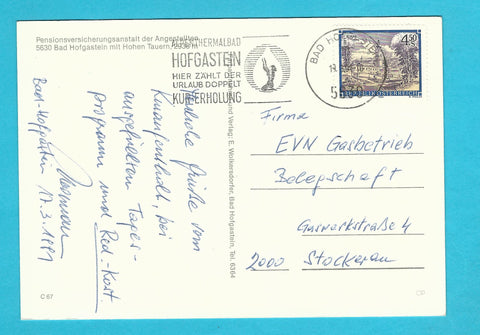 Pensionsversicherungsanstalt der Angestellten
5630 Bad Hofgastein mit Hohen Tauern, 2936 m
THERMALBAD
HOFGASTEIN
HIER ZÄHLT DER
URLAUB DOPPELT
KUR + ERHOLUNG
BAD HOFGASTEIN
4.50
REPUBLIK ÖSTERREICH
Herzliche Grüße vom
Kuraufenthalt, bei
ausgefülltem Tages-
programm und Red.-Kost.
Bad-Hofgastein 17.3.1991
und Verlag: E. Wolkersdorfer, Bad Hofgastein, Tel. 6364
Firma
EVN Gasbetrieb
Belegschaft
Gaswerkstraße 4
2000 Stockerau
C 67